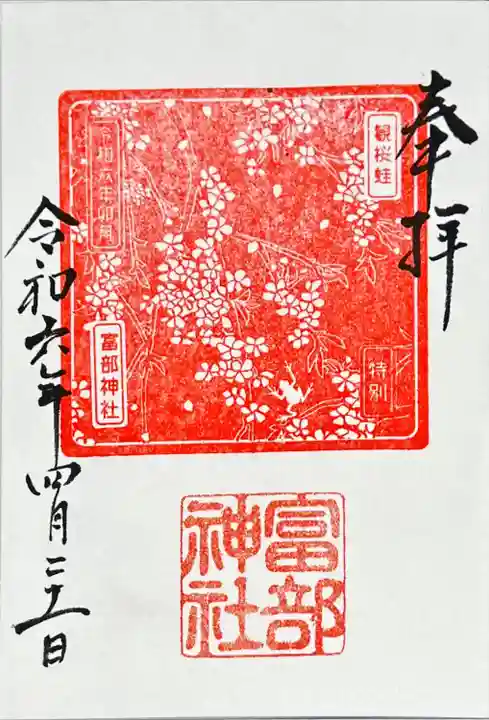 奉拝
観桜蛙
特別
令和六年卯月
富部神社
富部
神社
令和六年四月二十一日